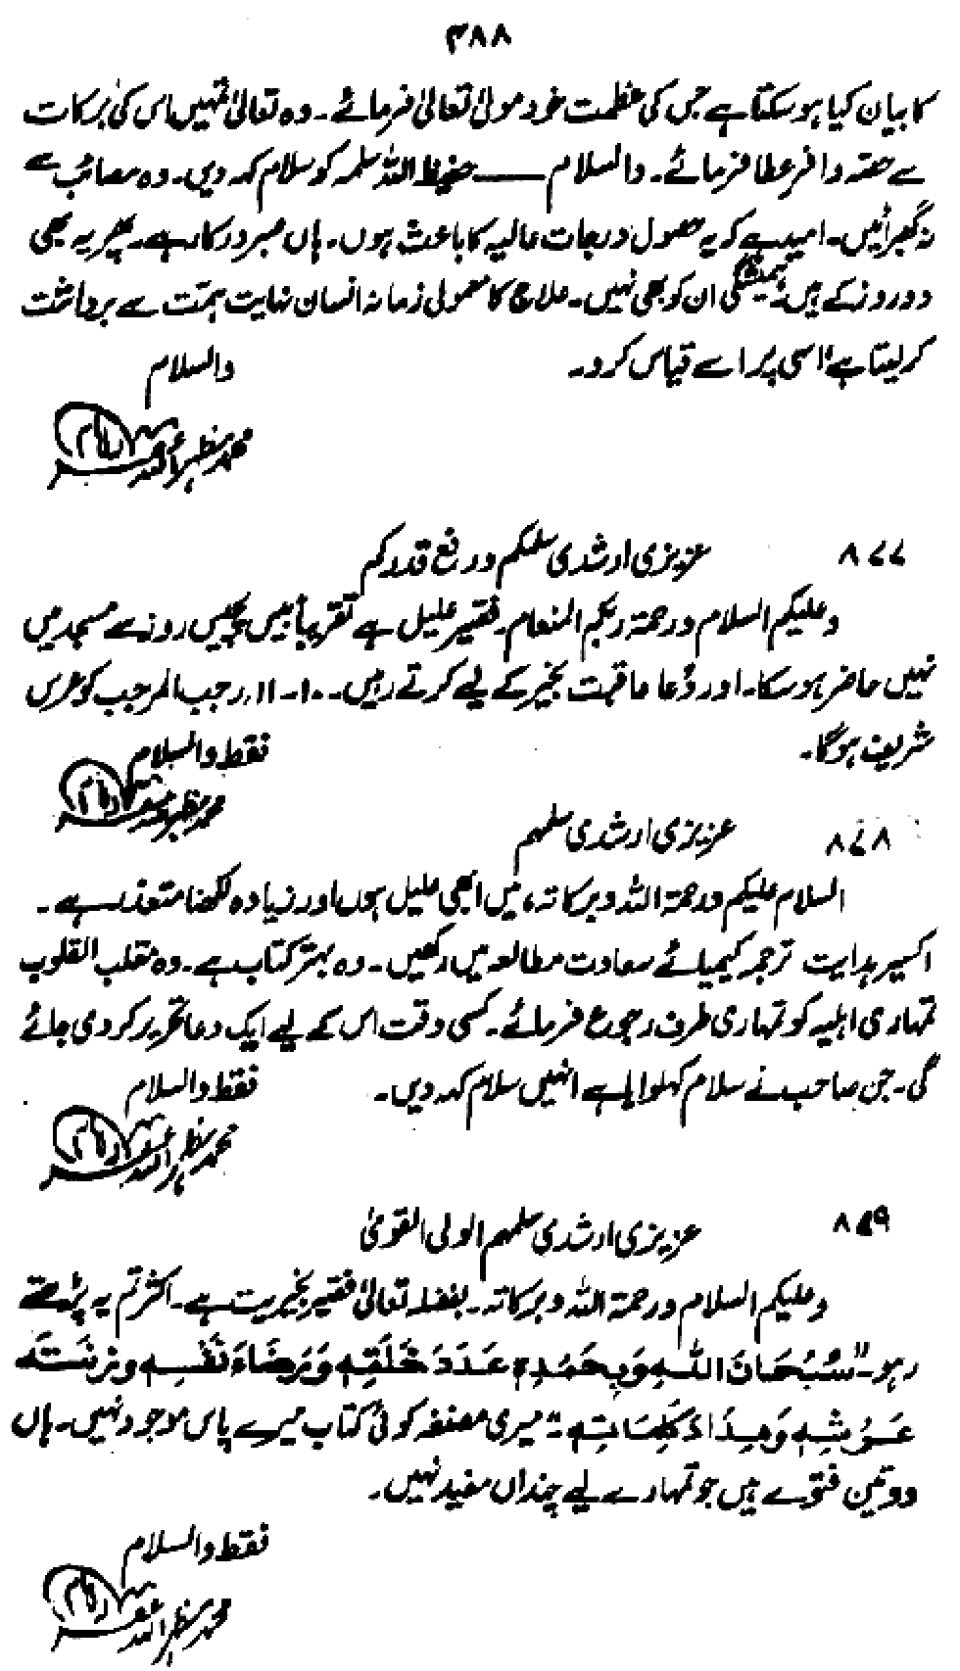 ۳۸۸
کا بیان کیا ہو سکتا ہے جس کی عظمت خود مولیٰ تعالیٰ فرمائے۔ وہ تعالیٰ تمہیں اس کی برکات
سے حصہ وافر عطا فرمائے۔ والسلام —— حفیظ اللہ سلمہ کو سلام کہہ دیں۔ وہ مصائب سے
نہ گھبرائیں۔ امید ہے کہ یہ حصول درجات عالیہ کا باعث ہوں۔ ہاں صبر درکار ہے۔ پھر یہ بھی
دو روز کے ہیں ہمیشگی ان کو بھی نہیں۔ علاج کا معمولی زمانہ انسان نہایت ہمت سے برداشت
کر لیتا ہے اسی پر اسے قیاس کرو۔
والسلام
محمد مظہر اللہ
۸۷۷ عزیزی ارشدی سلمکم و رفع قدرکم
وعلیکم السلام ورحمۃ ربکم المنعام۔ فقیر علیل ہے تقریباً بیس پچیس روز سے مسجد میں
نہیں حاضر ہو سکا۔ اور دُعا عاقبت بخیر کے لیے کرتے رہیں۔ ۱۰۔۱۱۔ رجب المرجب کو عرس
شریف ہوگا۔
فقط والسلام
محمد مظہر اللہ
۸۷۸ عزیزی ارشدی سلمہم
السلام علیکم ورحمۃ اللہ وبرکاتہ، میں ابھی علیل ہوں اور زیادہ لکھنا متعذر ہے۔
اکسیر ہدایت ترجمہ کیمیائے سعادت مطالعہ میں رکھیں۔ وہ بہتر کتاب ہے۔ وہ مقلب القلوب
تمہاری اہلیہ کو تمہاری طرف رجوع فرمائے۔ کسی وقت اس کے لیے ایک دعا تحریر کر دی جائے
گی۔ جن صاحب نے سلام کہلوایا ہے انہیں سلام کہہ دیں۔
فقط والسلام
محمد مظہر اللہ
۸۷۹ عزیزی ارشدی سلمہم الولی القویٰ
وعلیکم السلام ورحمۃ اللہ وبرکاتہ۔ بفضلہ تعالیٰ فقیر بخیریت ہے۔ اکثر تم یہ پڑھتے
رہو۔ "سُبْحَانَ اللّٰهِ وَبِحَمْدِهٖ عَدَدَ خَلْقِهٖ وَرِضَاءَ نَفْسِهٖ وَزِنَةَ
عَرْشِهٖ وَمِدَادَ كَلِمَاتِهٖ"۔ میری مصنفہ کوئی کتاب میرے پاس موجود نہیں۔ ہاں
دو تین فتوے ہیں جو تمہارے لیے چنداں مفید نہیں۔
فقط والسلام
محمد مظہر اللہ